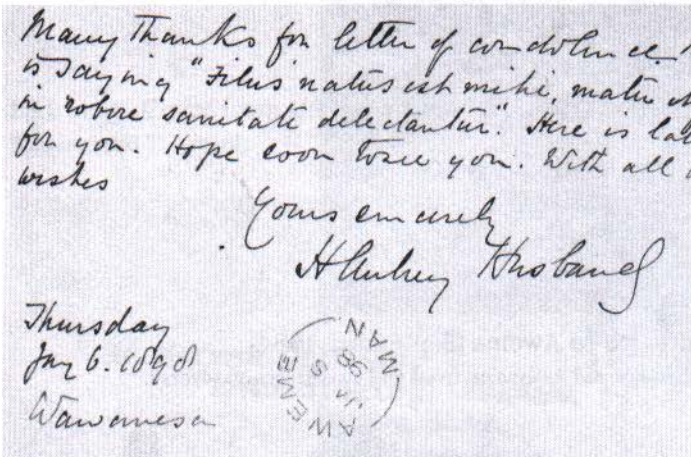 Many thanks for letter of condolence!
is saying "Filus natus est mihi, mater et
in robore sanitate delectantur." Here is lat
for you. Hope soon to see you. With all
wishes
Yours sincerely
H Aubrey Husband
Thursday
Jay 6. 1898
Wawanesa
AWEME
MAN
98